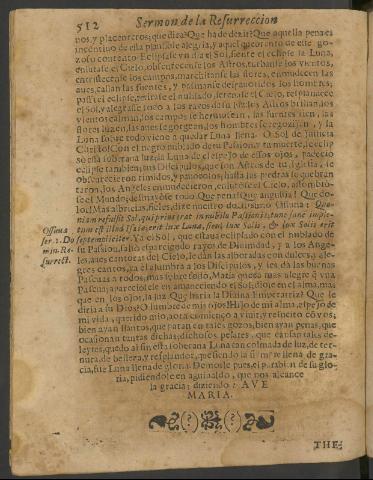 512 Sermon de la Resurreccion
nos, y placenteros; que dirà? Que ha de dezir? Que aquella pena es
incentivo de esta plausible alegria, y aquel quebranto de este go-
zoso contento. Eclipsase vn dia el Sol, siente el eclipse la Luna,
enlutase el Cielo, obscurecense los Astros, turbanse los vientos,
entristecense los campos, marchitanse las flores, enmudecen las
aues, callan las fuentes, y pasmanse de los hombres;
passa el eclipse, retirase el nublado, serenase el Cielo, resplandece
el Sol, y alegrase todo à los rayos de su luz: los Astros brillan, los
vientos calman, los campos se hermosean, las fuentes rien, las
flores luzen, las aues gorgean, los hombres se regozijan, y la
Luna sobre todo viene à quedar Luna llena. O Sol de Justicia
Christo! Con el negro nublado de tu Passion, y tu muerte, se eclip
sò essa soberana luz; la Luna de el espejo de essos ojos, padeciò
eclipse tambien; tus Discipulos, que son Astros de tu Iglesia, se
obscurecieron timidos, y pavorosos; hasta las piedras se quebran
taron, los Angeles enmudecieron, enlutòse el Cielo, assombrò-
se el Mundo, desmayòse todo. Que pena! Que angustia! Que do-
lor! Mas albricias, fieles, dize nuestro doctissimo Ossuna: Quo-
niam refulsit Sol, qui prius erat in nubilo Passionis; tunc sane imple-
tum est illud Isaiæ, erit lux Lunæ, sicut lux Solis, & lux Solis erit
septempliciter. Ya el Sol, que estaua eclipsado con el nublado de
Ossuna
ser. 1. Do
min. Re-
surrect.
su Passion, saliò esparciendo rayos de Divinidad, y a los Ange-
les, aues canoras del Cielo, le dàn las alboradas con dulces, y ale
gres cantos, ya el alumbra a los Discipulos, y les dà las buenas
Pascuas a todos, mas sobre todo, Maria queda mas alegre que vna
Pascua; apareciòsele en amaneciendo el Sol; diòle en el alma, mas
que en los ojos, la luz. Que haria la Divina Emperatriz? Que le
diria a su Dios? O lumbre de mis ojos! Hijo de mi alma, espejo de
mi vida, querido mio, aora comienço a vivir, y resucito con vos;
bien ayan llantos, que paran en tales gozos, bien ayan penas, que
ocasionan tantas dichas; dichosos pesares, que causan tales de-
leytes, quedò al fin, esta soberana Luna tan colmada de luz, de ter-
nura, de belleza, y resplandor, que siendo la siempre llena de gra-
cia, fue Luna llena de gloria. Demosle pues, el parabien de su glo-
ria, pidiendole en aguinaldo, que nos alcance
la gracia; diziendo: AVE
MARIA.
THE-